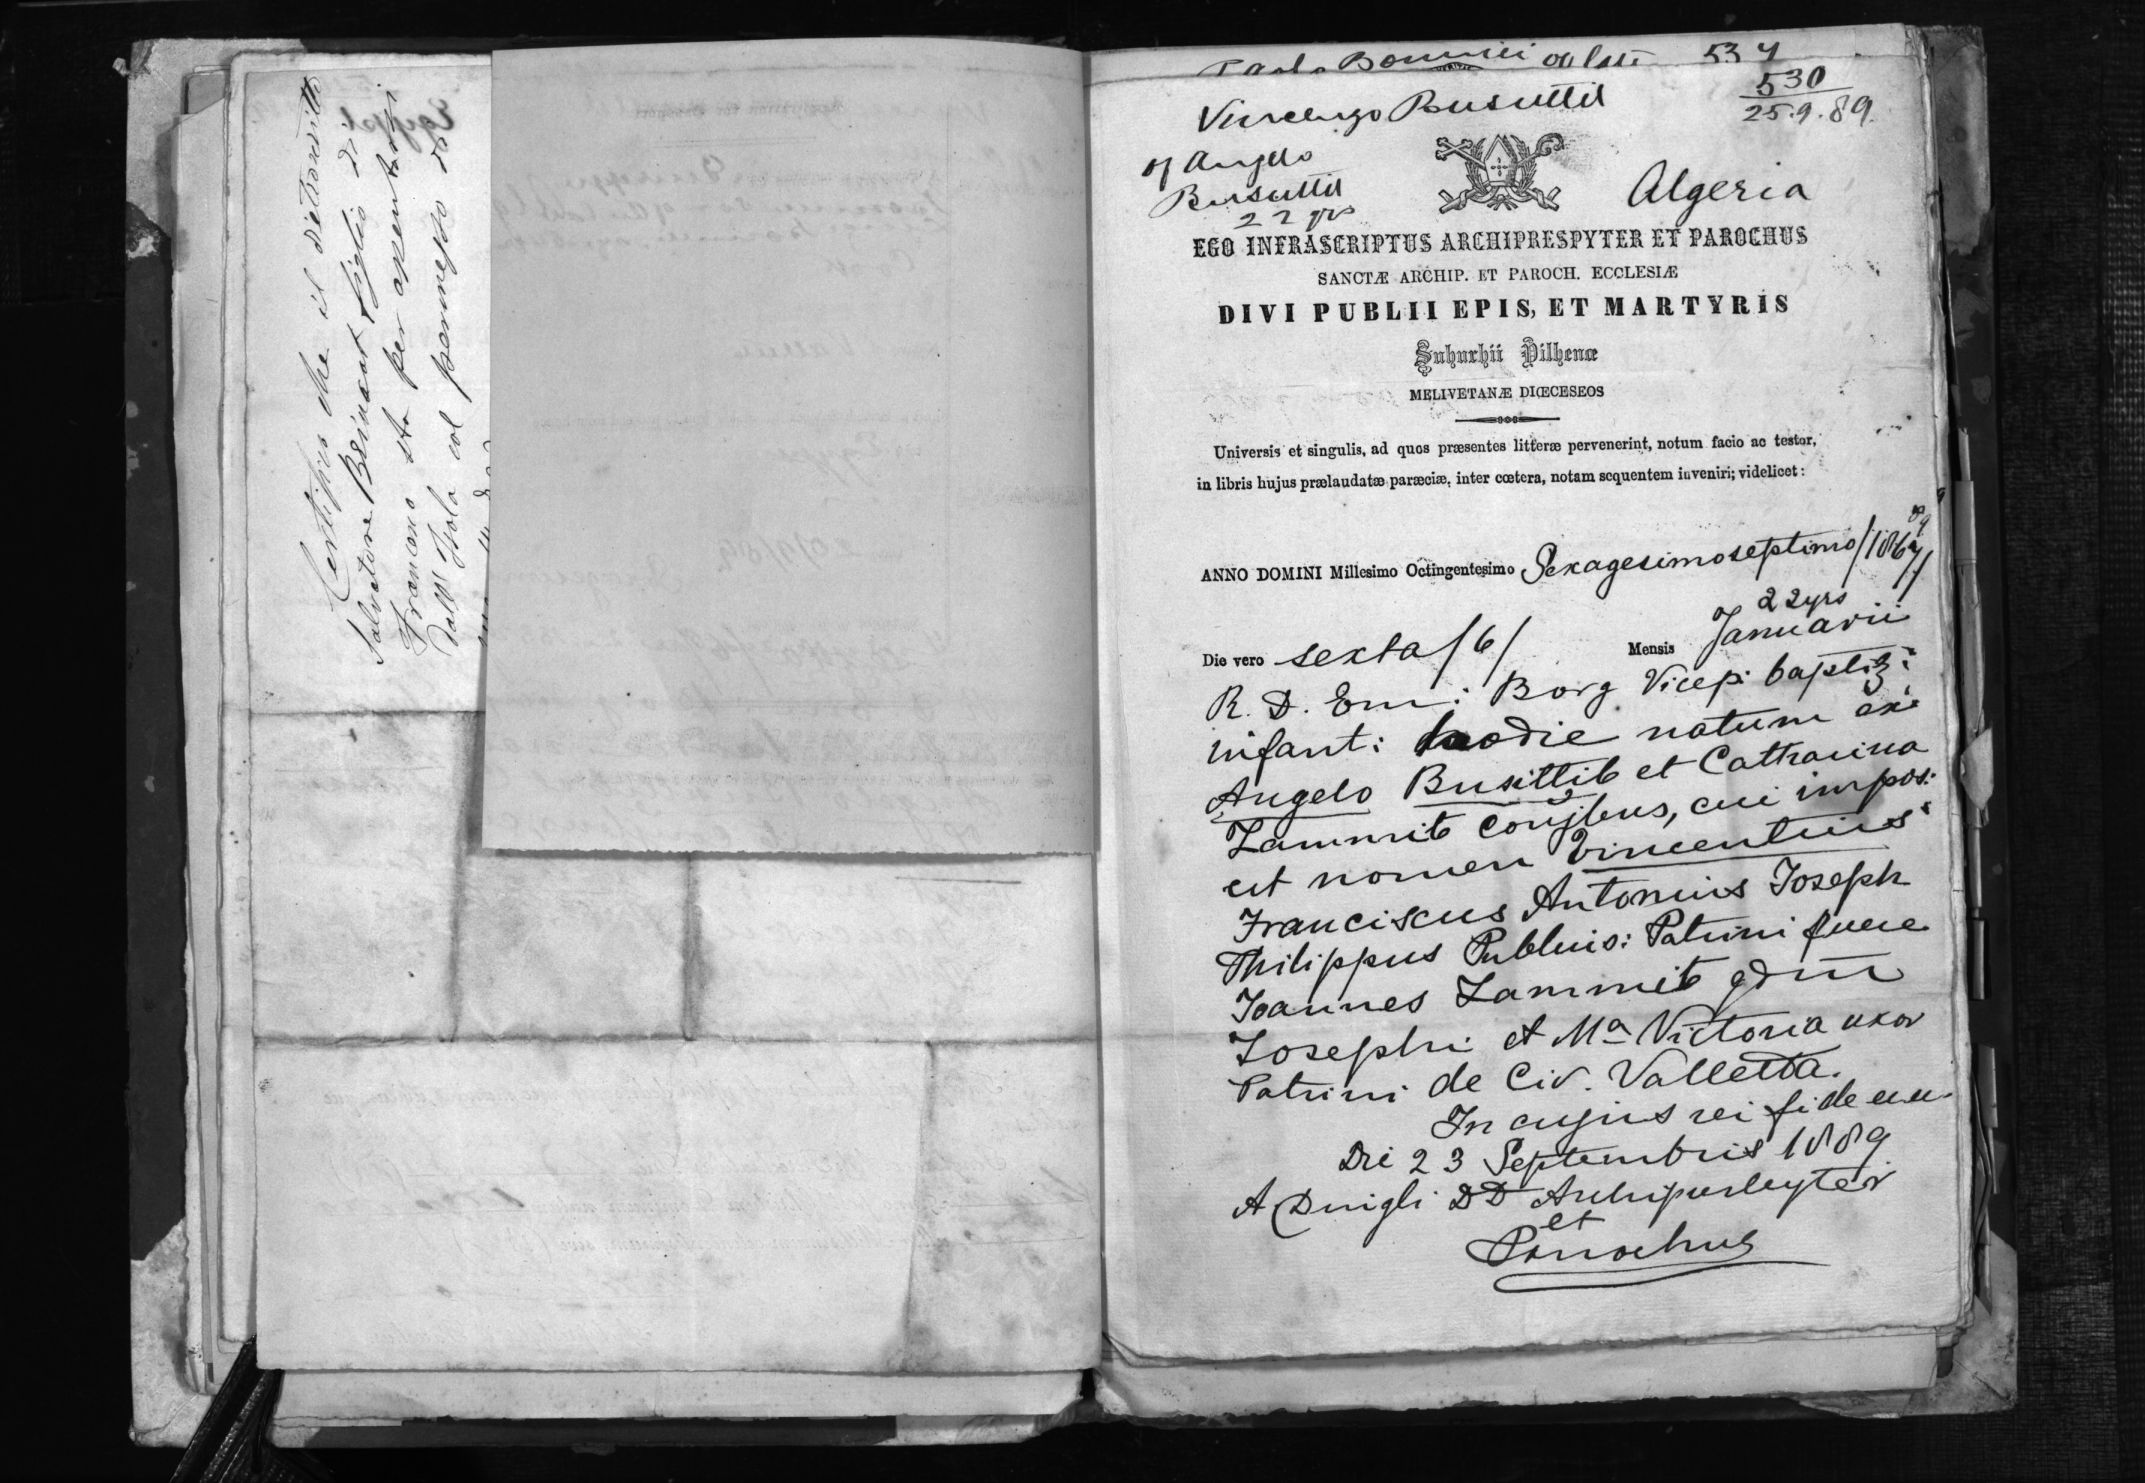 Certifico che il dietroscritto
Salvatore Brincat figlio di
Francesco sta per assentarsi
dall' Isola col permesso di
534
Vincenzo Busuttil
530
25.9.89.
of Angelo
Busuttil
22 yrs
Algeria
EGO INFRASCRIPTUS ARCHIPRESPYTER ET PAROCHUS
SANCTÆ ARCHIP. ET PAROCH. ECCLESIÆ
DIVI PUBLII EPIS, ET MARTYRIS
Suburbii Vilhenæ
MELIVETANÆ DIŒCESEOS
Universis et singulis, ad quos præsentes litteræ pervenerint, notum facio ac testor,
in libris hujus prælaudatæ parœciæ, inter cœtera, notam sequentem inveniri; videlicet:
89
ANNO DOMINI Millesimo Octingentesimo Sexagesimoseptimo /1867/
22yrs
Die vero sexta /6/ Mensis Januarii
R. D. Em: Borg Vicep: baptiz:
infant: hodie natum ex
Angelo Busittil et Catharina
Zammit conjbus, cui impos:
est nomen Vincentius
Franciscus Antonius Joseph
Philippus Publius: Patrini fuere
Joannes Zammit qdm
Josephi et Ma Victoria uxor
Patrini de Civ. Valletta.
In cujus rei fidem
Die 23 Septembris 1889
A Dingli DD Archipresbyter
et
Parochus